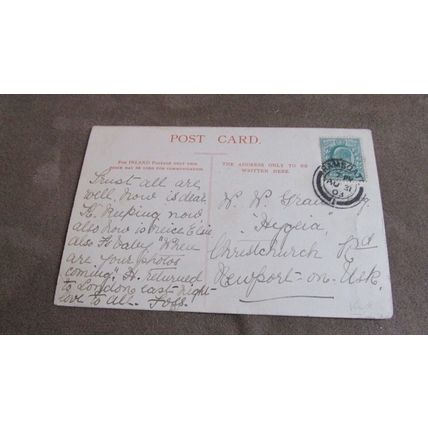 POST CARD.
FOR INLAND POSTAGE ONLY THIS
SPACE MAY BE USED FOR COMMUNICATION.
THE ADDRESS ONLY TO BE
WRITTEN HERE.
AU 31
Trust all are
well, How is dear
K. Keeping now
also How is niece Elsie
also F. baby, "When
are your photos
coming". H. returned
to London last night
love to all.
W. W.
"Hygeia",
Christchurch Rd
Newport-on-Usk.